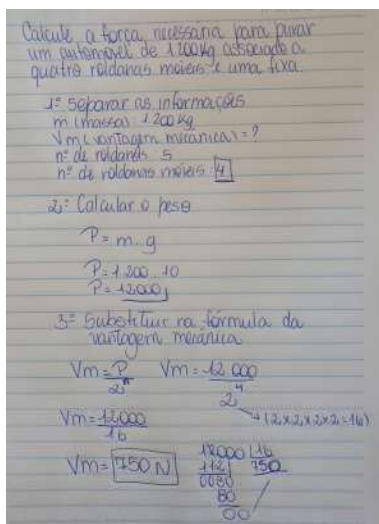 Calcule a força necessária para puxar
um automóvel de 1200kg associado a
quatro roldanas móveis e uma fixa.
1º Separar as informações
m (massa): 1200 kg
Vm (vantagem mecânica) = ?
nº de roldanas: 5
nº de roldanas móveis: 4
2º Calcular o peso
P = m . g
P = 1 200 . 10
P = 12000 j
3º Substituir na fórmula da
vantagem mecânica
Vm = P/2ⁿ Vm = 12 000/2⁴
→ (2x2x2x2=16)
Vm = 12000/16
Vm = 750 N
12000 |16
112 750
0080
80
00